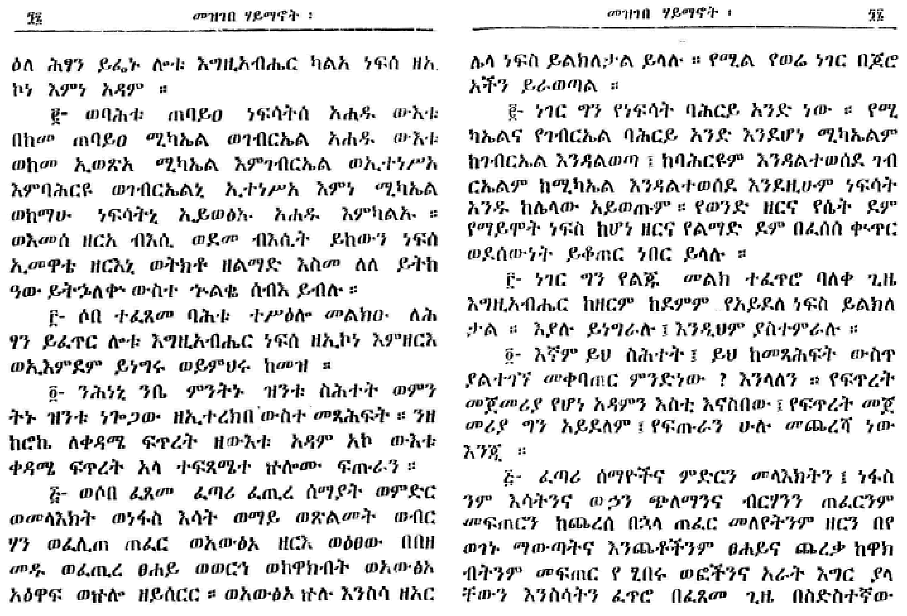 ፸፪ መዝገበ ሃይማኖት ፡
ዕለ ሕፃን ይፌኑ ሎቱ እግዚአብሔር ካልአ ነፍሰ ዘኢ
ኮነ እምነ አዳም ።
፪- ወባሕቱ ጠባይዐ ነፍሳትሰ አሐዱ ውእቱ
በከመ ጠባይዐ ሚካኤል ወገብርኤል አሐዱ ውእቱ
ወከመ ኢወጽአ ሚካኤል እምገብርኤል ወኢተነሥአ
እምባሕርዩ ወገብርኤልኒ ኢተነሥአ እምነ ሚካኤል
ወከማሁ ነፍሳትኒ ኢይወፅኡ አሐዱ እምካልኡ ።
ወእመሰ ዘርአ ብእሲ ወደመ ብእሲት ይከውን ነፍሰ
ኢመዋቴ ዘርእኒ ወትክቶ ዘልማድ እስመ ለለ ይትከ
ዓው ይትኃለቍ ውስተ ኍልቄ ሰብእ ይብሉ ።
፫- ሶበ ተፈጸመ ባሕቱ ተሥዕሎ መልክዑ ለሕ
ፃን ይፈጥር ሎቱ እግዚአብሔር ነፍሰ ዘኢኮነ እምዘርእ
ወኢእምደም ይነግሩ ወይምህሩ ከመዝ ።
፬- ንሕነኒ ንቤ ምንትኑ ዝንቱ ስሕተት ወምን
ትኑ ዝንቱ ነጐጋው ዘኢተረክበ ውስተ መጻሕፍት ። ንዘ
ከሮኬ ለቀዳሜ ፍጥረት ዘውእቱ አዳም አኮ ውእቱ
ቀዳሜ ፍጥረት አላ ተፍጻሜተ ኵሎሙ ፍጡራን ።
፭- ወሶበ ፈጸመ ፈጣሪ ፈጢረ ሰማያት ወምድር
ወመላእክት ወነፋስ እሳት ወማይ ወጽልመት ወብር
ሃን ወፈሊጠ ጠፈር ወአውፅአ ዘርእ ወዕፀው በበዘ
መዱ ወፈጢረ ፀሐይ ወወርኅ ወከዋክብት ወአውፅአ
አዕዋፍ ወኵሎ ዘይሰርር ። ወአውፅኦ ኵሉ እንስሳ ዘአር
መዝገበ ሃይማኖት ፡ ፸፪
ሌላ ነፍስ ይልክለታል ይላሉ ። የሚል የወሬ ነገር በጆሮ
አችን ይራወጣል ።
፪- ነገር ግን የነፍሳት ባሕርይ አንድ ነው ። የሚ
ካኤልና የገብርኤል ባሕርይ አንድ እንደሆነ ሚካኤልም
ከገብርኤል እንዳልወጣ ፤ ከባሕርዩም እንዳልተወሰደ ገብ
ርኤልም ከሚካኤል እንዳልተወሰደ እንደዚሁም ነፍሳት
አንዱ ከሌላው አይወጡም ። የወንድ ዘርና የሴት ደም
የማይሞት ነፍስ ከሆነ ዘርና የልማድ ደም በፈሰሰ ቍጥር
ወደሰውነት ይቆጠር ነበር ይላሉ ።
፫- ነገር ግን የልጁ መልክ ተፈጥሮ ባለቀ ጊዜ
እግዚአብሔር ከዘርም ከደምም የአይደለ ነፍስ ይልክለ
ታል ። እያሉ ይነግራሉ ፤ እንዲህም ያስተምራሉ ።
፬- እኛም ይህ ስሕተት ፤ ይህ ከመጻሕፍት ውስጥ
ያልተገኘ መቀባጠር ምንድነው ? እንላለን ። የፍጥረት
መጀመሪያ የሆነ አዳምን እስቲ እናስበው ፤ የፍጥረት መጀ
መሪያ ግን አይደለም ፤ የፍጡራን ሁሉ መጨረሻ ነው
እንጂ ።
፭- ፈጣሪ ሰማዮችና ምድርን መላእክትን ፤ ነፋስ
ንም እሳትንና ውኃን ጭለማንና ብርሃንን ጠፈርንም
መፍጠርን ከጨረሰ በኋላ ጠፈር መለየትንም ዘርን በየ
ወገኑ ማውጣትና እንጨቶችንም ፀሐይና ጨረቃ ከዋክ
ብትንም መፍጠር የሚበሩ ወፎችንና አራት እግር ያላ
ቸውን እንስሳትን ፈጥሮ በፈጸመ ጊዜ በስድስተኛው